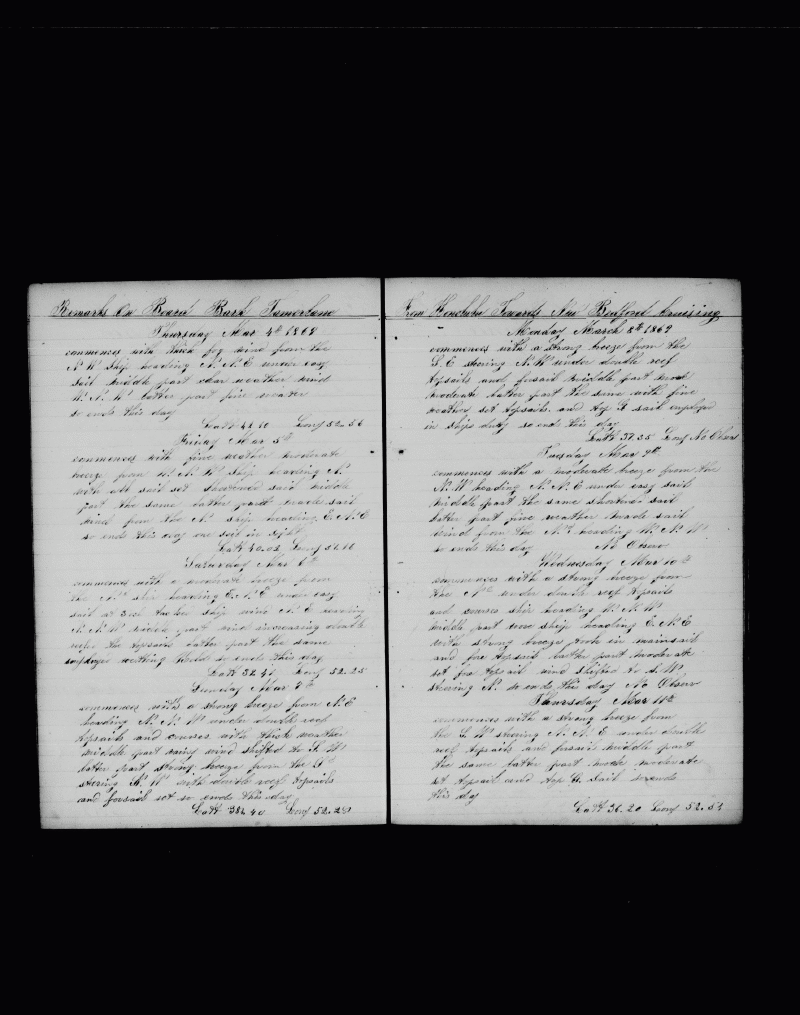 Remarks On Board Bark Tamerlane
Thursday Mar 4th 1869
commences with thick fog wind from the
N. W. ship heading N. N. E under easy
sail middle part clear weather wind
W. N. W. latter part fine weather
so ends this day
Latt 42.10 Long 52.56
Friday Mar 5th
commences with fine weather moderate
breeze from W. N. W. ship heading N.
with all sail set shortened sail middle
part the same latter part made sail
wind from the N. ship heading E. N. E
so ends this day one sail in sight
Latt 40.02 Long
Saturday Mar 6th
commences with a moderate breeze from
the N. ship heading E. N. E under easy
sail at ship wind N. E heading
N. N. W middle part wind increasing double
reef the topsails latter part the same
employed nothing so ends this day
Latt Long 52.25
Sunday Mar 7th
commences with a strong breeze from N. E
heading N. N. W under double reef
topsails and courses with thick weather
middle part rainy wind shifted to S. W
latter part strong breeze from the
steering N. W with double reef topsails
and foresail set so ends this day
Latt Long 52.20
From Honolulu Towards New Bedford cruising
Monday March 8th 1869
commences with a strong breeze from the
S. E stering N. W under double reef
topsails and forsail middle part more
moderate latter part the same with fine
weather set topsails and top G sail employed
in ships duty so ends this day
Latt 37.35 Long No Observ
Tuesday Mar 9th
commences with a moderate breeze from the
N. W heading N. N. E under easy sail
middle part the same shortened sail
latter part fine weather made sail
wind from the N. heading W. N. W
so ends this day No Observ
Wednesday Mar 10th
commences with a strong breeze from
the N. under double reef topsails
and courses ship heading W. N. W
middle part wore ship heading E. N. E
with strong breeze took in mainsail
and fore topsail latter part moderate
set fore topsail wind shifted to S. W
stering N. so ends this day No Observ
Thursday Mar 11th
commences with a strong breeze from
the S. W stering N. N. E under double
reef topsails and forsail middle part
the same latter part more moderate
set topsail and top G. sail so ends
this day
Latt 36.20 Long 52.53